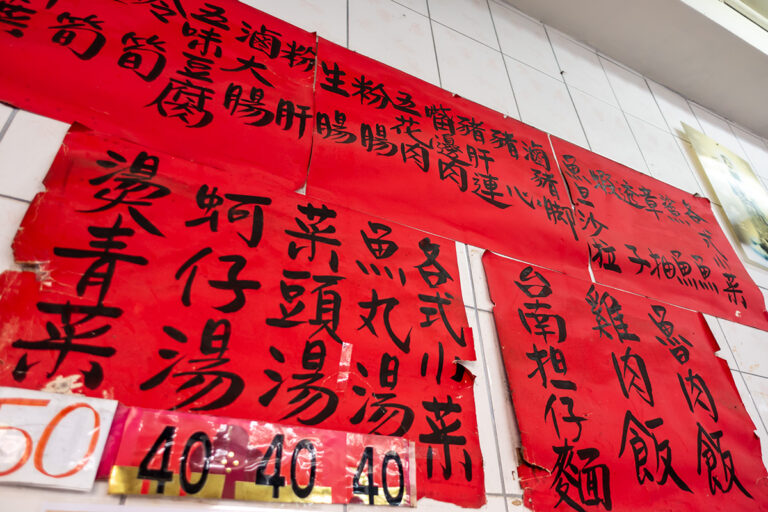 各式小菜
鯊魚
章魚
透抽
蝦子
魚旦沙拉
滷豬腳
豬心
豬肝連
嘴邊肉
五花肉
粉腸
生腸
粉肝
滷大腸
五味豆腐
冷筍
筍
魯肉飯
雞肉飯
台南担仔麵
各式小菜
魚丸湯
菜頭湯
蚵仔湯
燙青菜
50
40
40
40